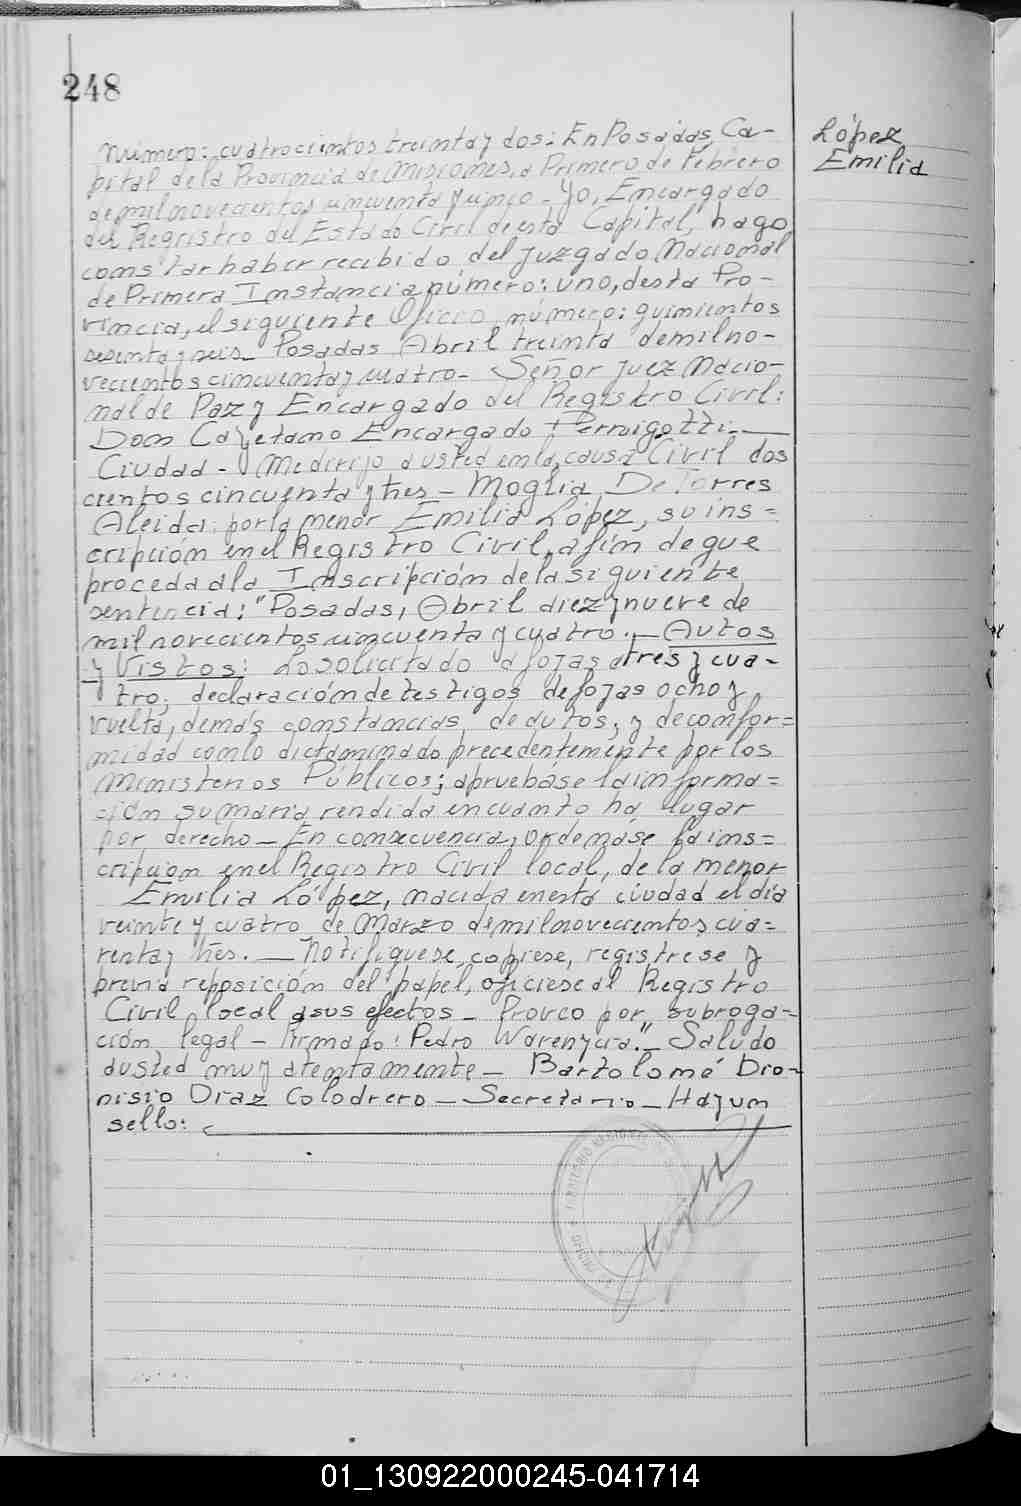 248
López
Emilia
Número: cuatrocientos treinta y dos: En Posadas, Ca-
pital de la Provincia de Misiones, a Primero de Febrero
de mil novecientos cincuenta y cinco - Yo, Encargado
del Registro del Estado Civil de esta Capital, hago
constar haber recibido del Juzgado Nacional
de Primera Instancia número: uno, desta Pro-
vincia, el siguiente Oficio número: quinientos
sesenta y seis - Posadas Abril treinta de mil no-
vecientos cincuenta y cuatro - Señor Juez Nacio-
nal de Paz y Encargado del Registro Civil:
Don Cayetano Encargado Pernigotti -
Ciudad - Me dirijo a usted en la causa Civil dos
cientos cincuenta y tres - Moglia De Torres
Aleida: por la menor Emilia López, su ins=
cripción en el Registro Civil, a fin de que
proceda a la Inscripción de la siguiente
sentencia: "Posadas, Abril diez y nueve de
mil novecientos cincuenta y cuatro. - Autos
y Vistos: Lo solicitado a fojas tres y cua-
tro; declaración de testigos de fojas ocho y
vuelta, demás constancias de autos; y de confor=
midad con lo dictaminado precedentemente por los
Ministerios Públicos; apruebáse la informa=
ción sumaria rendida en cuanto há lugar
por derecho - En consecuencia, ordenáse la ins=
cripción en el Registro Civil local, de la menor
Emilia López, nacida en está ciudad el día
veinte y cuatro de Marzo de mil novecientos cua=
renta y tres. - Notifíquese, cópiese, regístrese y
previa reposición del papel, ofíciese al Registro
Civil local a sus efectos - Proveo por subroga=
ción legal - firmado: Pedro Warenycia." - Saludo
a usted muy atentamente - Bartolomé Dio-
nisio Diaz Colodrero - Secretario - Hay un
sello:
01_130922000245-041714